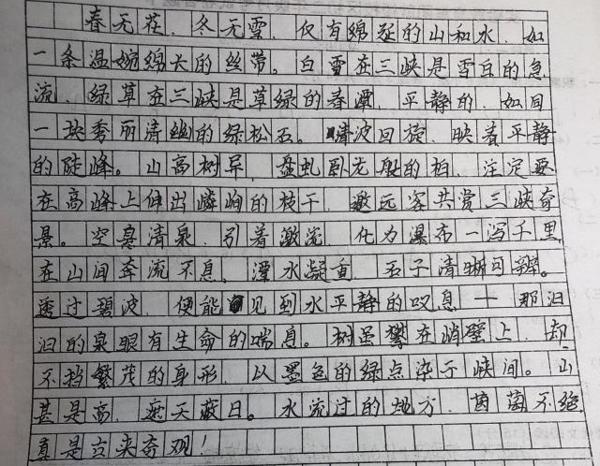 春无花，冬无雪，仅有绵延的山和水，如
一条温婉绵长的丝带。白雪在三峡是雪白的急
流，绿草在三峡是草绿的春潭，平静的，如同
一块秀丽清幽的绿松石。清波回旋，映着平静
的陡峰。山高树异，盘虬卧龙般的柏，注定要
在高峰上伸出嶙峋的枝干，邀远客共赏三峡奇
景。空臭清泉，引着激流，化为瀑布一泻千里，
在山间奔流不息，潭水凝重，石子清晰可辨。
透过碧波，便能见到水平静的叹息——那汩
汩的泉眼有生命的喘息。树虽攀在峭壁上，却
不挡繁茂的身形，以墨色的绿点染于峡间。山
甚是高，遮天蔽日。水流过的地方，茵茵不绝，
真是古来奇观！